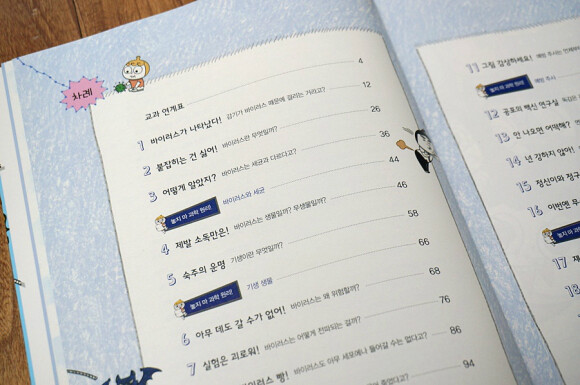 차례
교과 연계표 4
1 바이러스가 나타났다! 감기가 바이러스 때문에 걸리는 거라고? 12
2 붙잡히는 건 싫어! 바이러스란 무엇일까? 26
3 어떻게 알았지? 바이러스는 세균과 다르다고? 36
놓지 마 과학 원리! 바이러스와 세균 44
4 제발 소독만은! 바이러스는 생물일까? 무생물일까? 46
5 숙주의 운명 기생이란 무엇일까? 58
놓지 마 과학 원리! 기생 생물 66
6 아무 데도 갈 수가 없어! 바이러스는 왜 위험할까? 68
7 실험은 괴로워! 바이러스는 어떻게 전파되는 걸까? 76
바이러스 빵! 바이러스도 아무 세포에나 들어갈 수는 없다고? 86
94
11 그림 감상하세요!
놓지 마 과학 원리!
12 공포의 백신 연구실
13 안 나오면 어떡해?
14 넌 강하지 않아!
15 정신이와 정구
16 이번엔 무
놓지 마 과
17
18